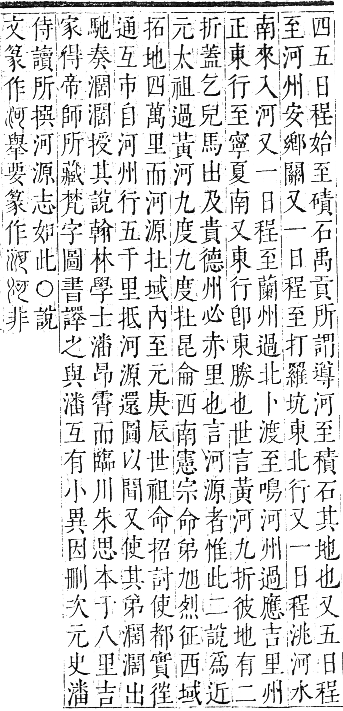 四五日程始至磧石禹貢所謂導河至積石其地也又五日程
至河州安鄉關又一日程至打羅坑東北行又一日程洮河水
南來入河又一日程至蘭州過北卜渡至鳴河州過應吉里州
正東行至寧夏南又東行卽東勝也世言黃河九折彼地有二
折蓋乞兒馬出及貴德州必赤里也言河源者惟此二說爲近
元太祖過黃河九度九度在昆侖西南憲宗命弟旭烈征西域
拓地四萬里而河源在域內至元庚辰世祖命招討使都實徃
通互市自河州行五千里抵河源還圖以聞又使其弟濶濶出
馳奏濶濶授其說翰林學士潘昂霄而臨川朱思本于八里吉
家得帝師所藏梵字圖書譯之與潘互有小異因刪次元史潘
侍讀所撰河源志如此○說
文篆作河舉要篆作河河非